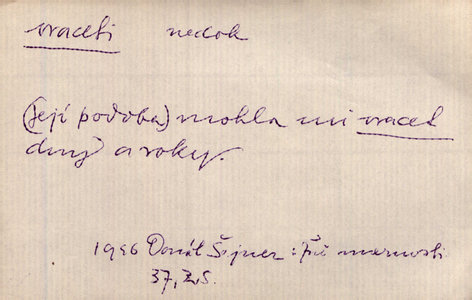 vraceti nedok
(Její podoba) mohla mi vracet
dny a roky.
1946 Donát Šajner: Při marnosti
37, Z.S.